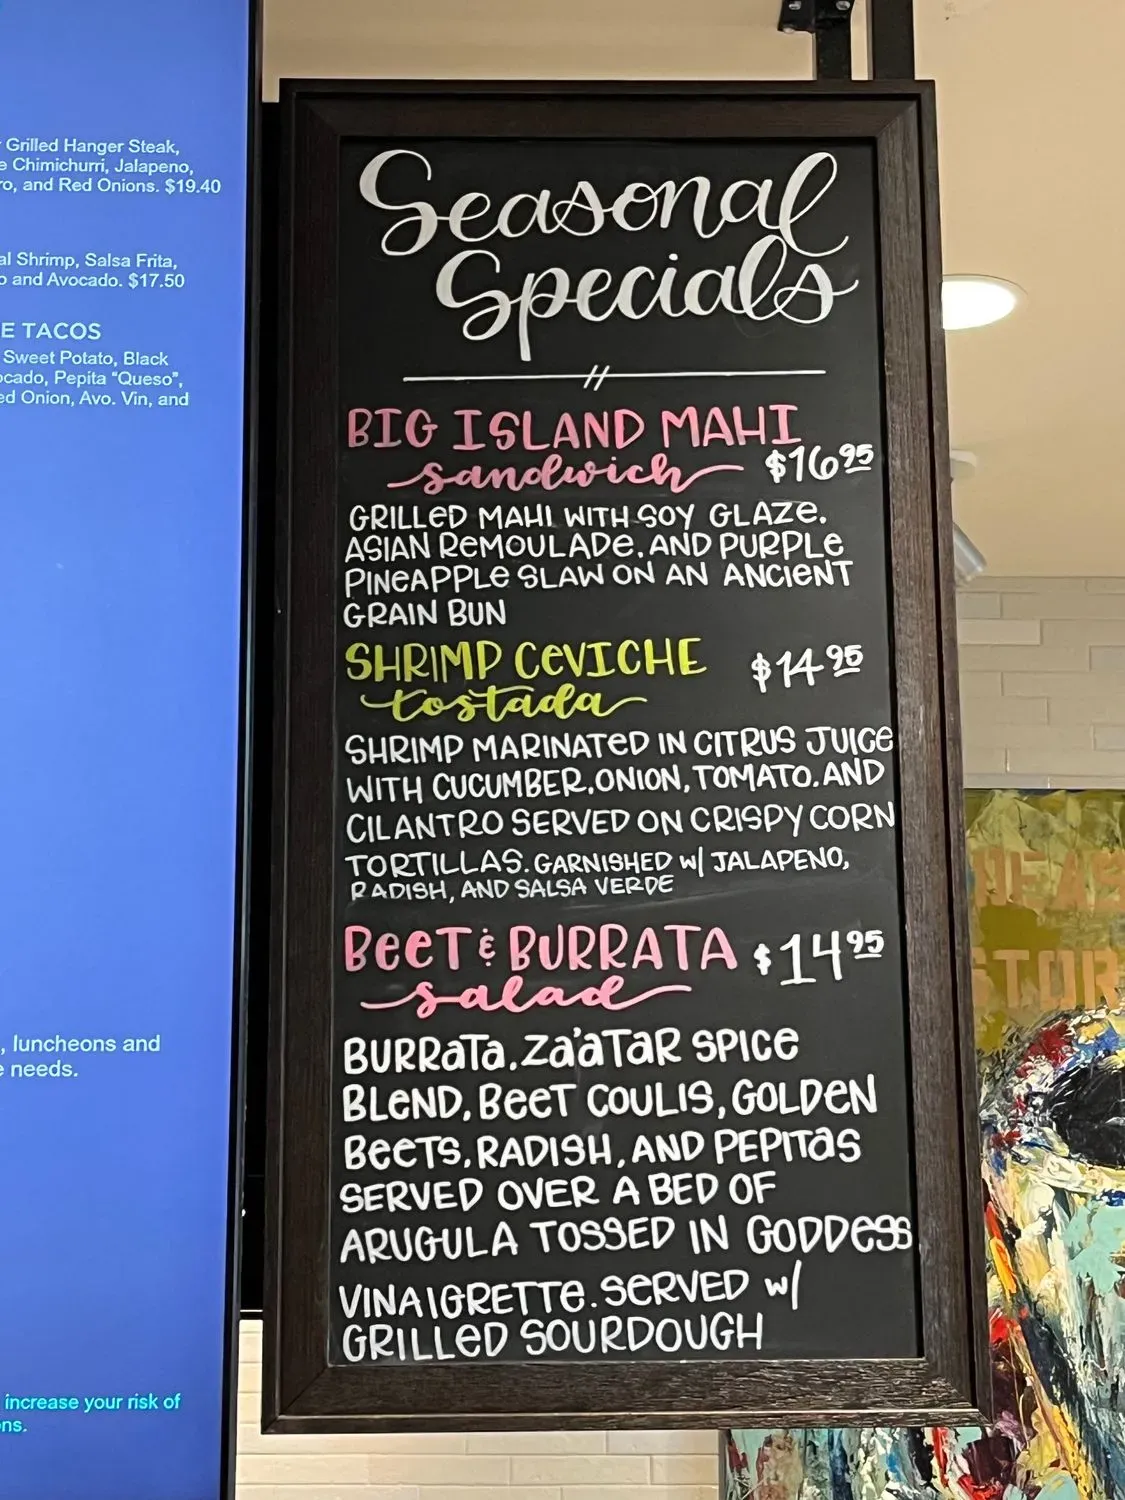 Grilled Hanger Steak,
Chimichurri, Jalapeno,
and Red Onions. $19.40
Shrimp, Salsa Frita,
and Avocado. $17.50
TACOS
Sweet Potato, Black
Pepita "Queso",
Onion, Avo. Vin, and
, luncheons and
needs.
increase your risk of
Seasonal
Specials
BIG ISLAND MAHI
sandwich $16.95
GRILLED MAHI WITH SOY GLAZE,
ASIAN REMOULADE, AND PURPLE
PINEAPPLE SLAW ON AN ANCIENT
GRAIN BUN
SHRIMP CEVICHE $14.95
tostada
SHRIMP MARINATED IN CITRUS JUICE
WITH CUCUMBER, ONION, TOMATO, AND
CILANTRO SERVED ON CRISPY CORN
TORTILLAS. GARNISHED w/ JALAPENO,
RADISH, AND SALSA VERDE
BEET & BURRATA $14.95
salad
BURRATA, ZA'ATAR SPICE
BLEND, BEET COULIS, GOLDEN
BEETS, RADISH, AND PEPITAS
SERVED OVER A BED OF
ARUGULA TOSSED IN GODDESS
VINAIGRETTE. SERVED w/
GRILLED SOURDOUGH